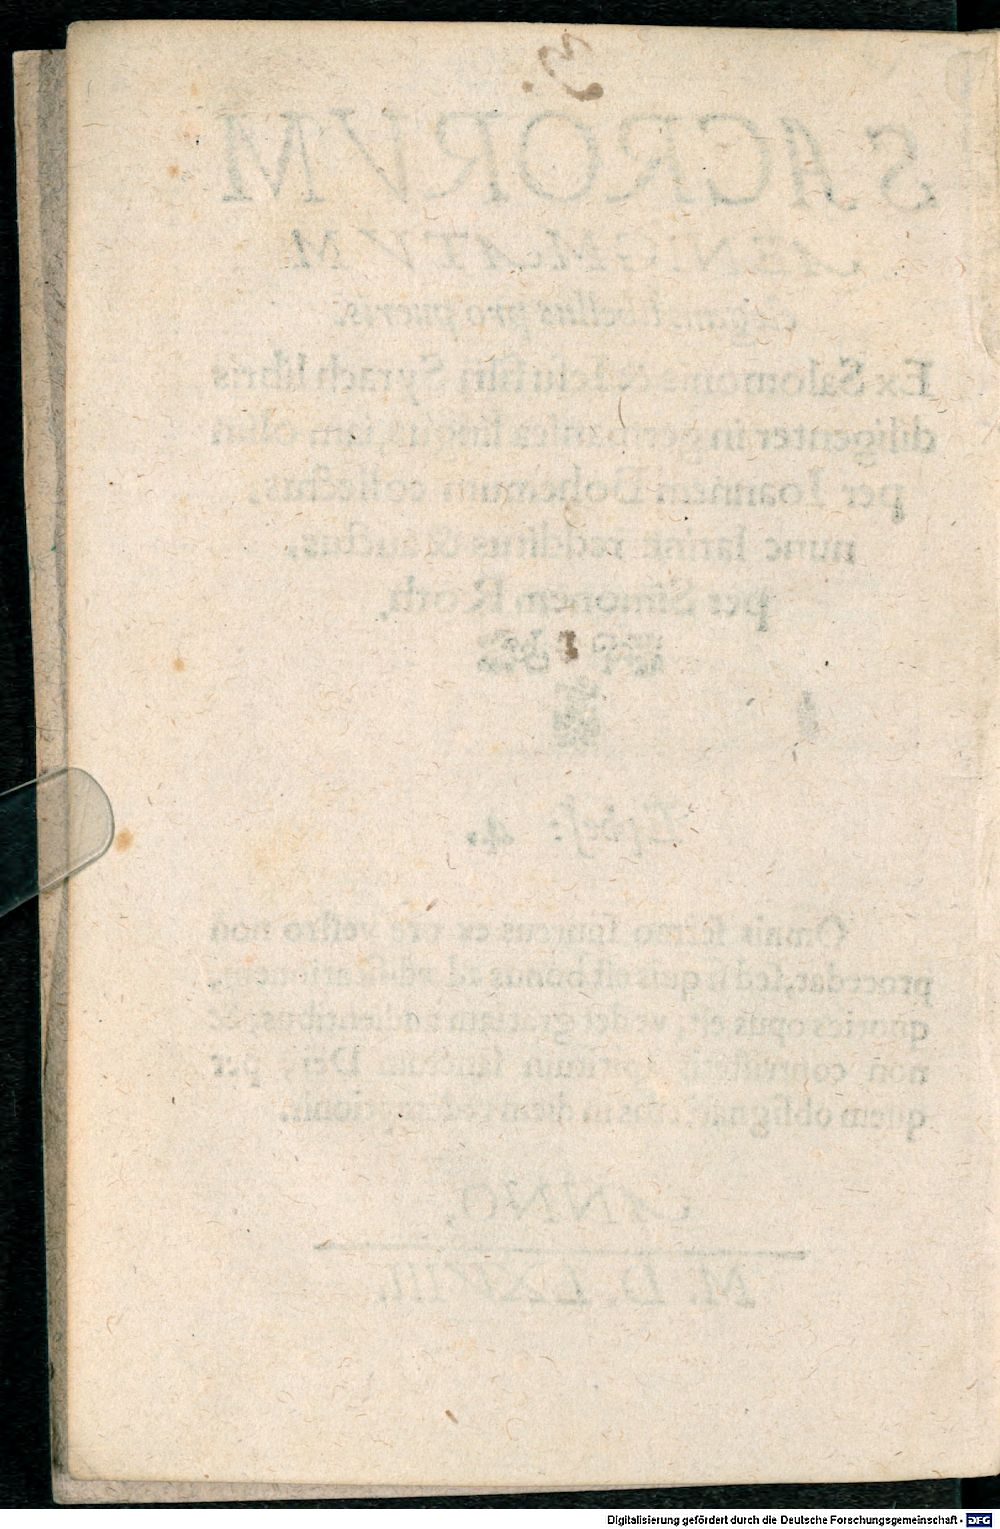 3.
SACRORVM
AENIGMATVM
elegans libellus pro pueris.
Ex Salomonis & Iesu filij Syrach libris
diligenter in germanica lingua, iam olim
per Ioannem Bohemum collectus,
nunc latine redditus & auctus,
per Simonem Roth,
Ephes: 4.
Omnis sermo spurcus ex ore vestro non
procedat, sed si quis est bonus ad ædificationem,
quoties opus est, vt det gratiam audientibus, &
non contristetis spiritum sanctum Dei, per
quem obsignati estis in diem redemptionis.
ANNO,
M. D. LXVIII.
Digitalisierung gefördert durch die Deutsche Forschungsgemeinschaft - DFG